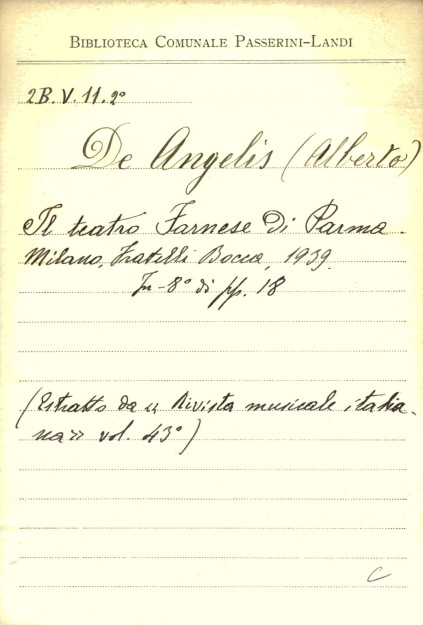 BIBLIOTECA COMUNALE PASSERINI-LANDI
2B.V.11.2°
De Angelis (Alberto)
Il teatro Farnese di Parma.
Milano, Fratelli Bocca, 1939.
In-8° di pp. 18
(Estratto da « Rivista musicale italia-
na» vol. 43°)
C